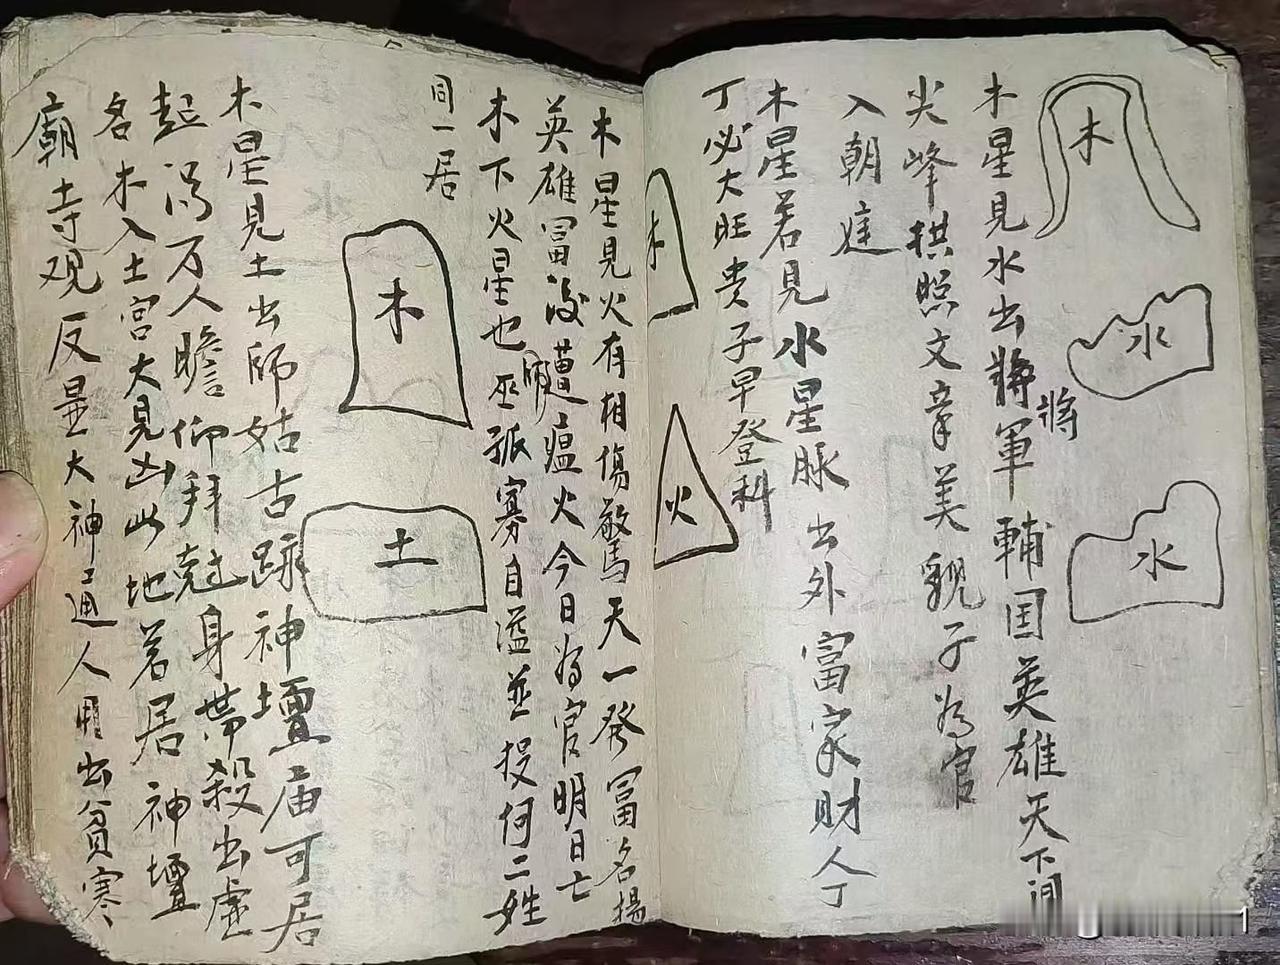 木
水
水
木星見水出將軍輔国英雄天下间
將
尖峰拱照文章美親子為官
入朝廷
木星若見水星脉出外富家財人丁
丁必大旺贵子早登科
木
火
木星見火有相傷驚天一發冨名揚
英雄冨没遭瘟火今日為官明日亡
木下火星也巫師孤寡自溢並投何二姓
同一居
木
土
木星見土出師姑古跡神壇庙可居
起 万人瞻仰拜尅身帶殺出虚
名木入土宫大見凶此地若居神壇
廟寺观反显大神通人 出貧寒